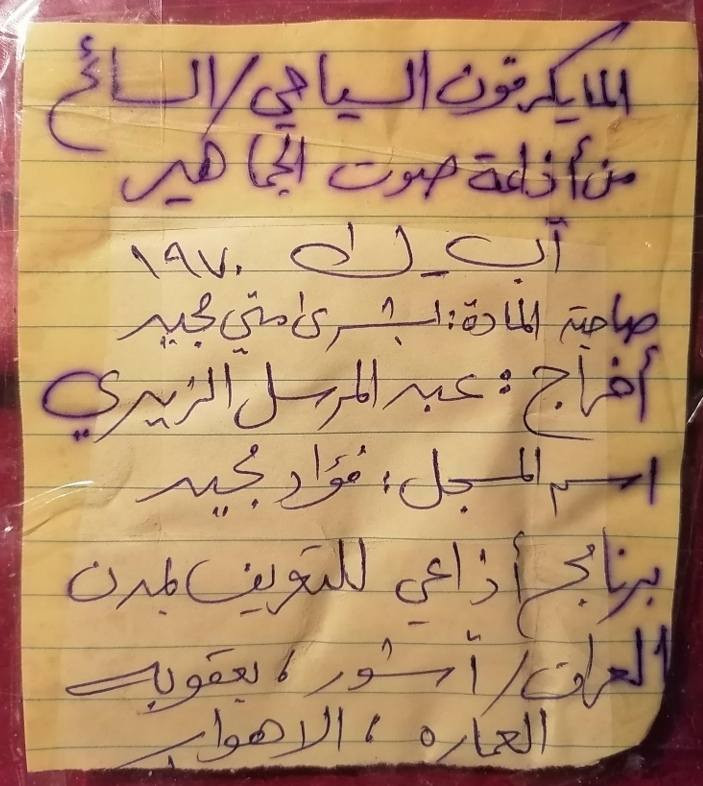 المايكرفون السياحي/السائح
من أذاعة صوت الجماهير
آب - ك١ ١٩٧٠
صاحبة المادة: بشرى متي مجيد
أخراج: عبد المرسل الزيدي
اسم المسجل: فؤاد مجيد
برنامج أذاعي للتعريف بمدن
العراق/آشور، بعقوبه
العماره، الاهوار